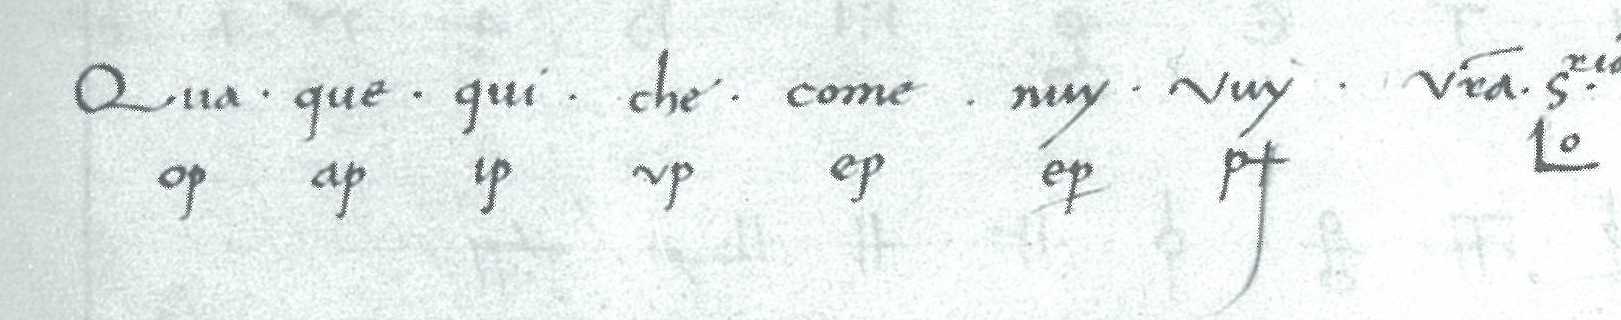 Qua · que · qui · che · come · nuy · Vuy · Vr̄a · S·ria
op ap ip vp ep ep